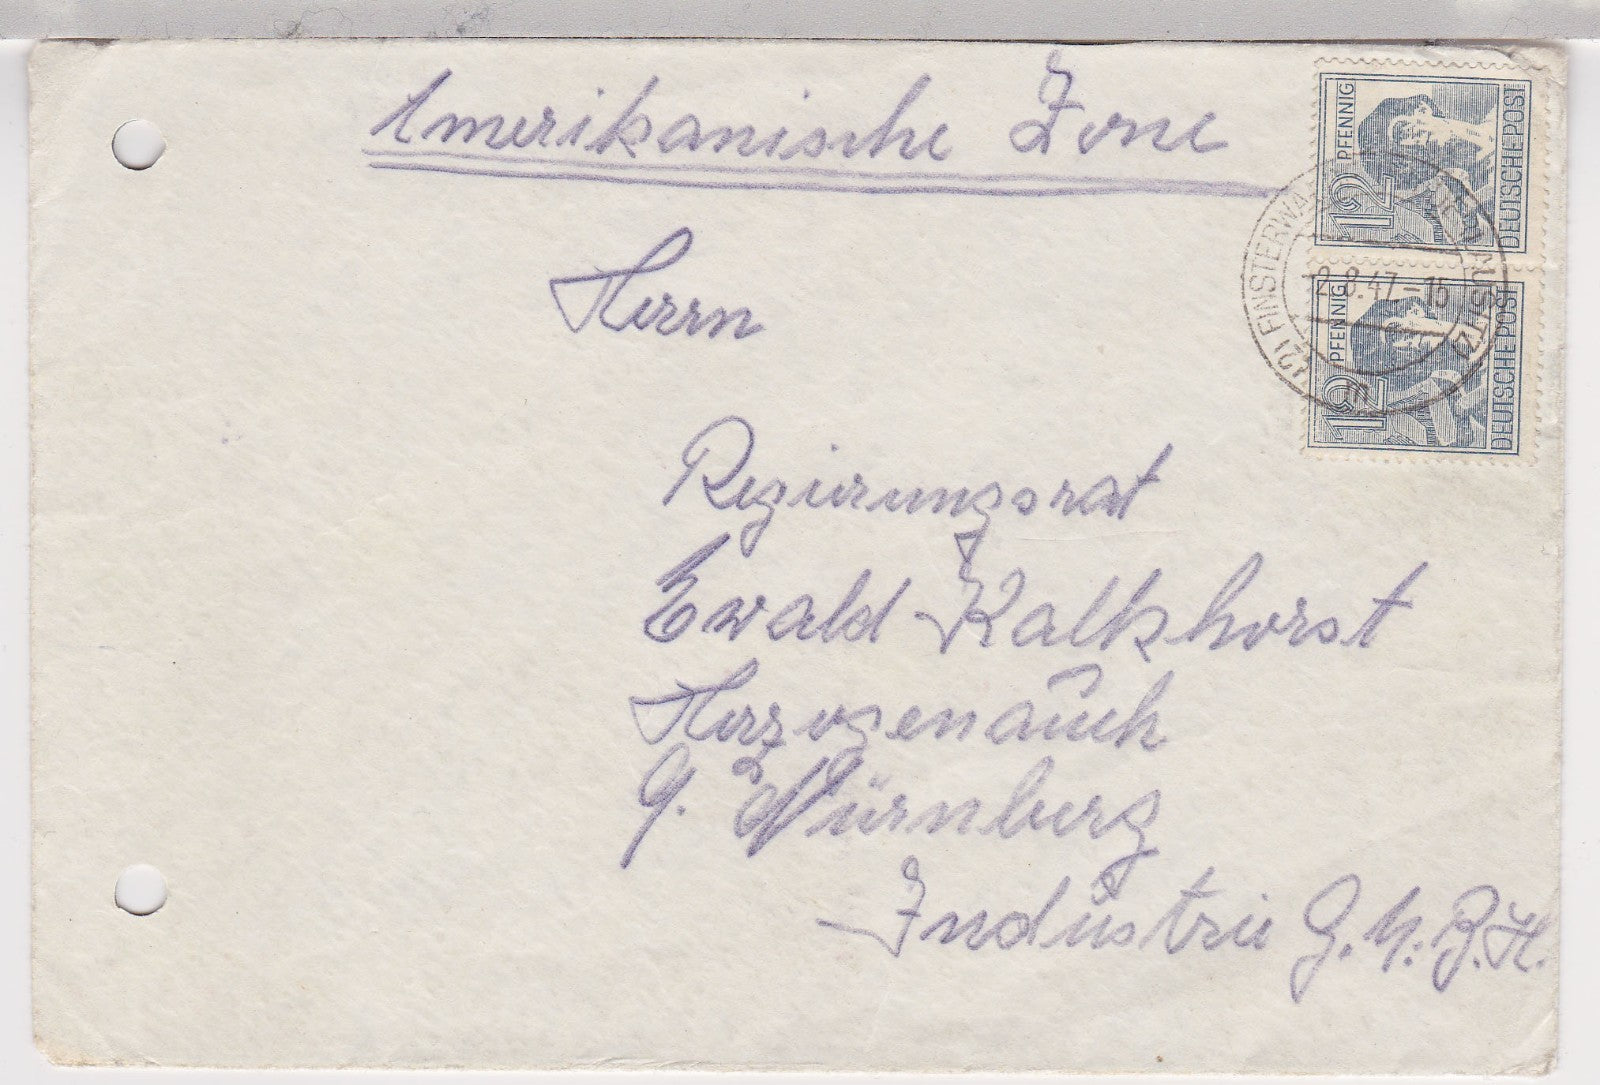 Amerikanische Zone
Herrn
Regierungsrat
Ewald Kalkhorst
Herzogenaŭch
b. Nürnberg
Indŭstrie G.M.B.H.
12 PFENNIG
DEUTSCHE POST
12 PFENNIG
DEUTSCHE POST
FINSTERWA
-2.8.47-15